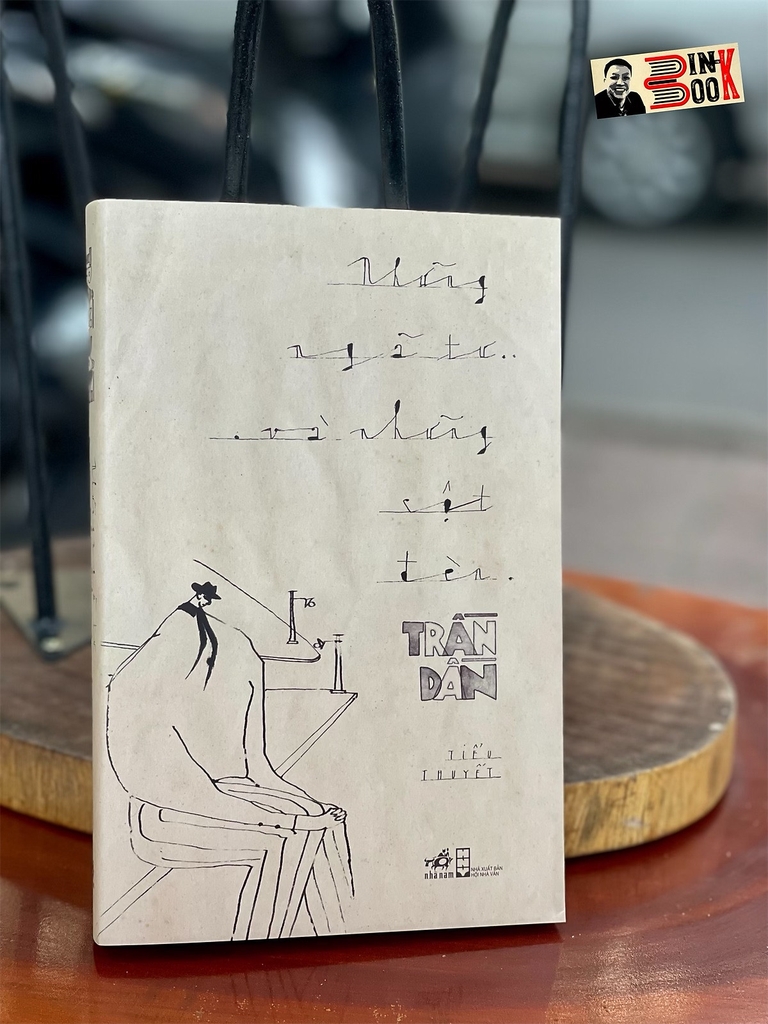 BIN BOOK
Những
ngã tư..
.và những
cột
đèn.
TRẦN
DẦN
TIỂU
THUYẾT
nhã nam
NHÀ XUẤT BẢN
HỘI NHÀ VĂN